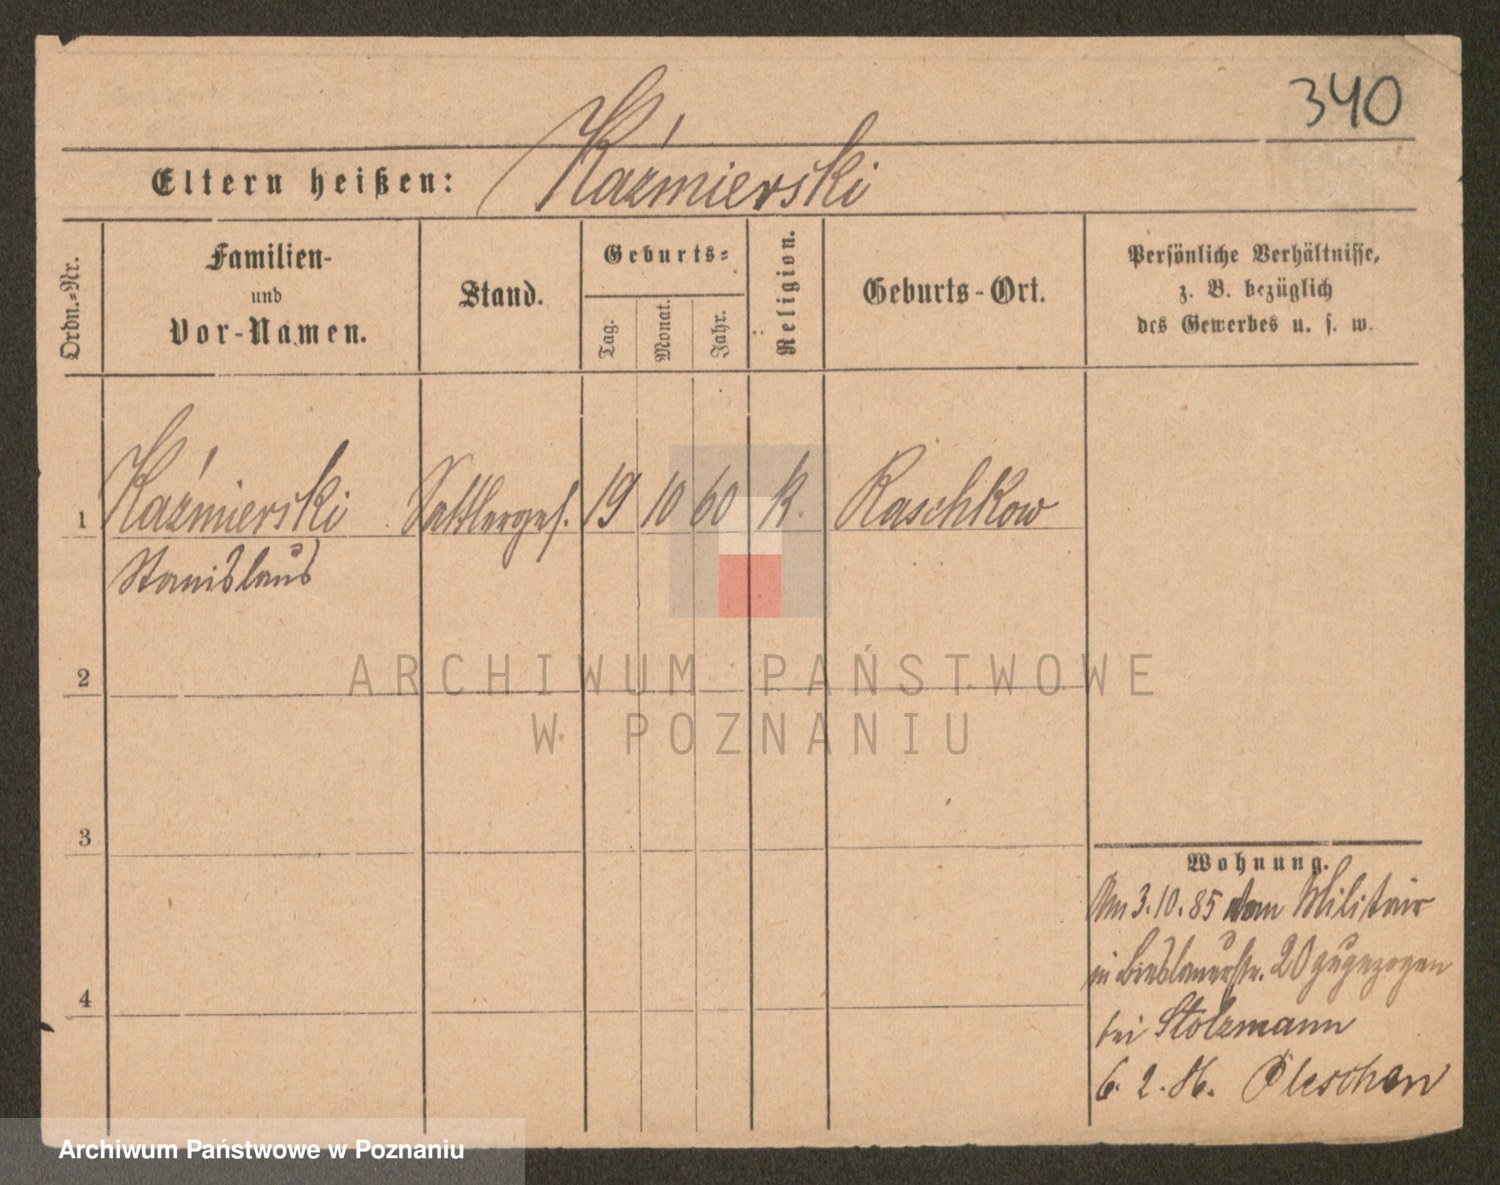 340
Eltern heißen: Kaźmierski
Ordn.-Nr.
Familien-
und
Vor-Namen.
Stand.
Geburts-
Tag.
Monat.
Jahr.
Religion.
Geburts-Ort.
Persönliche Verhältnisse,
z. B. bezüglich
des Gewerbes u. s. w.
1 Kaźmierski Sattlerges. 19 10 60 k. Raschkow
Stanislaus
2
ARCHIWUM PAŃSTWOWE
W POZNANIU
3
Wohnung.
Am 3.10.85 vom Militair
in Breslauerstr. 20 zugezogen
4
bei Stolzmann
6. 2. 86. Pleschen
Archiwum Państwowe w Poznaniu